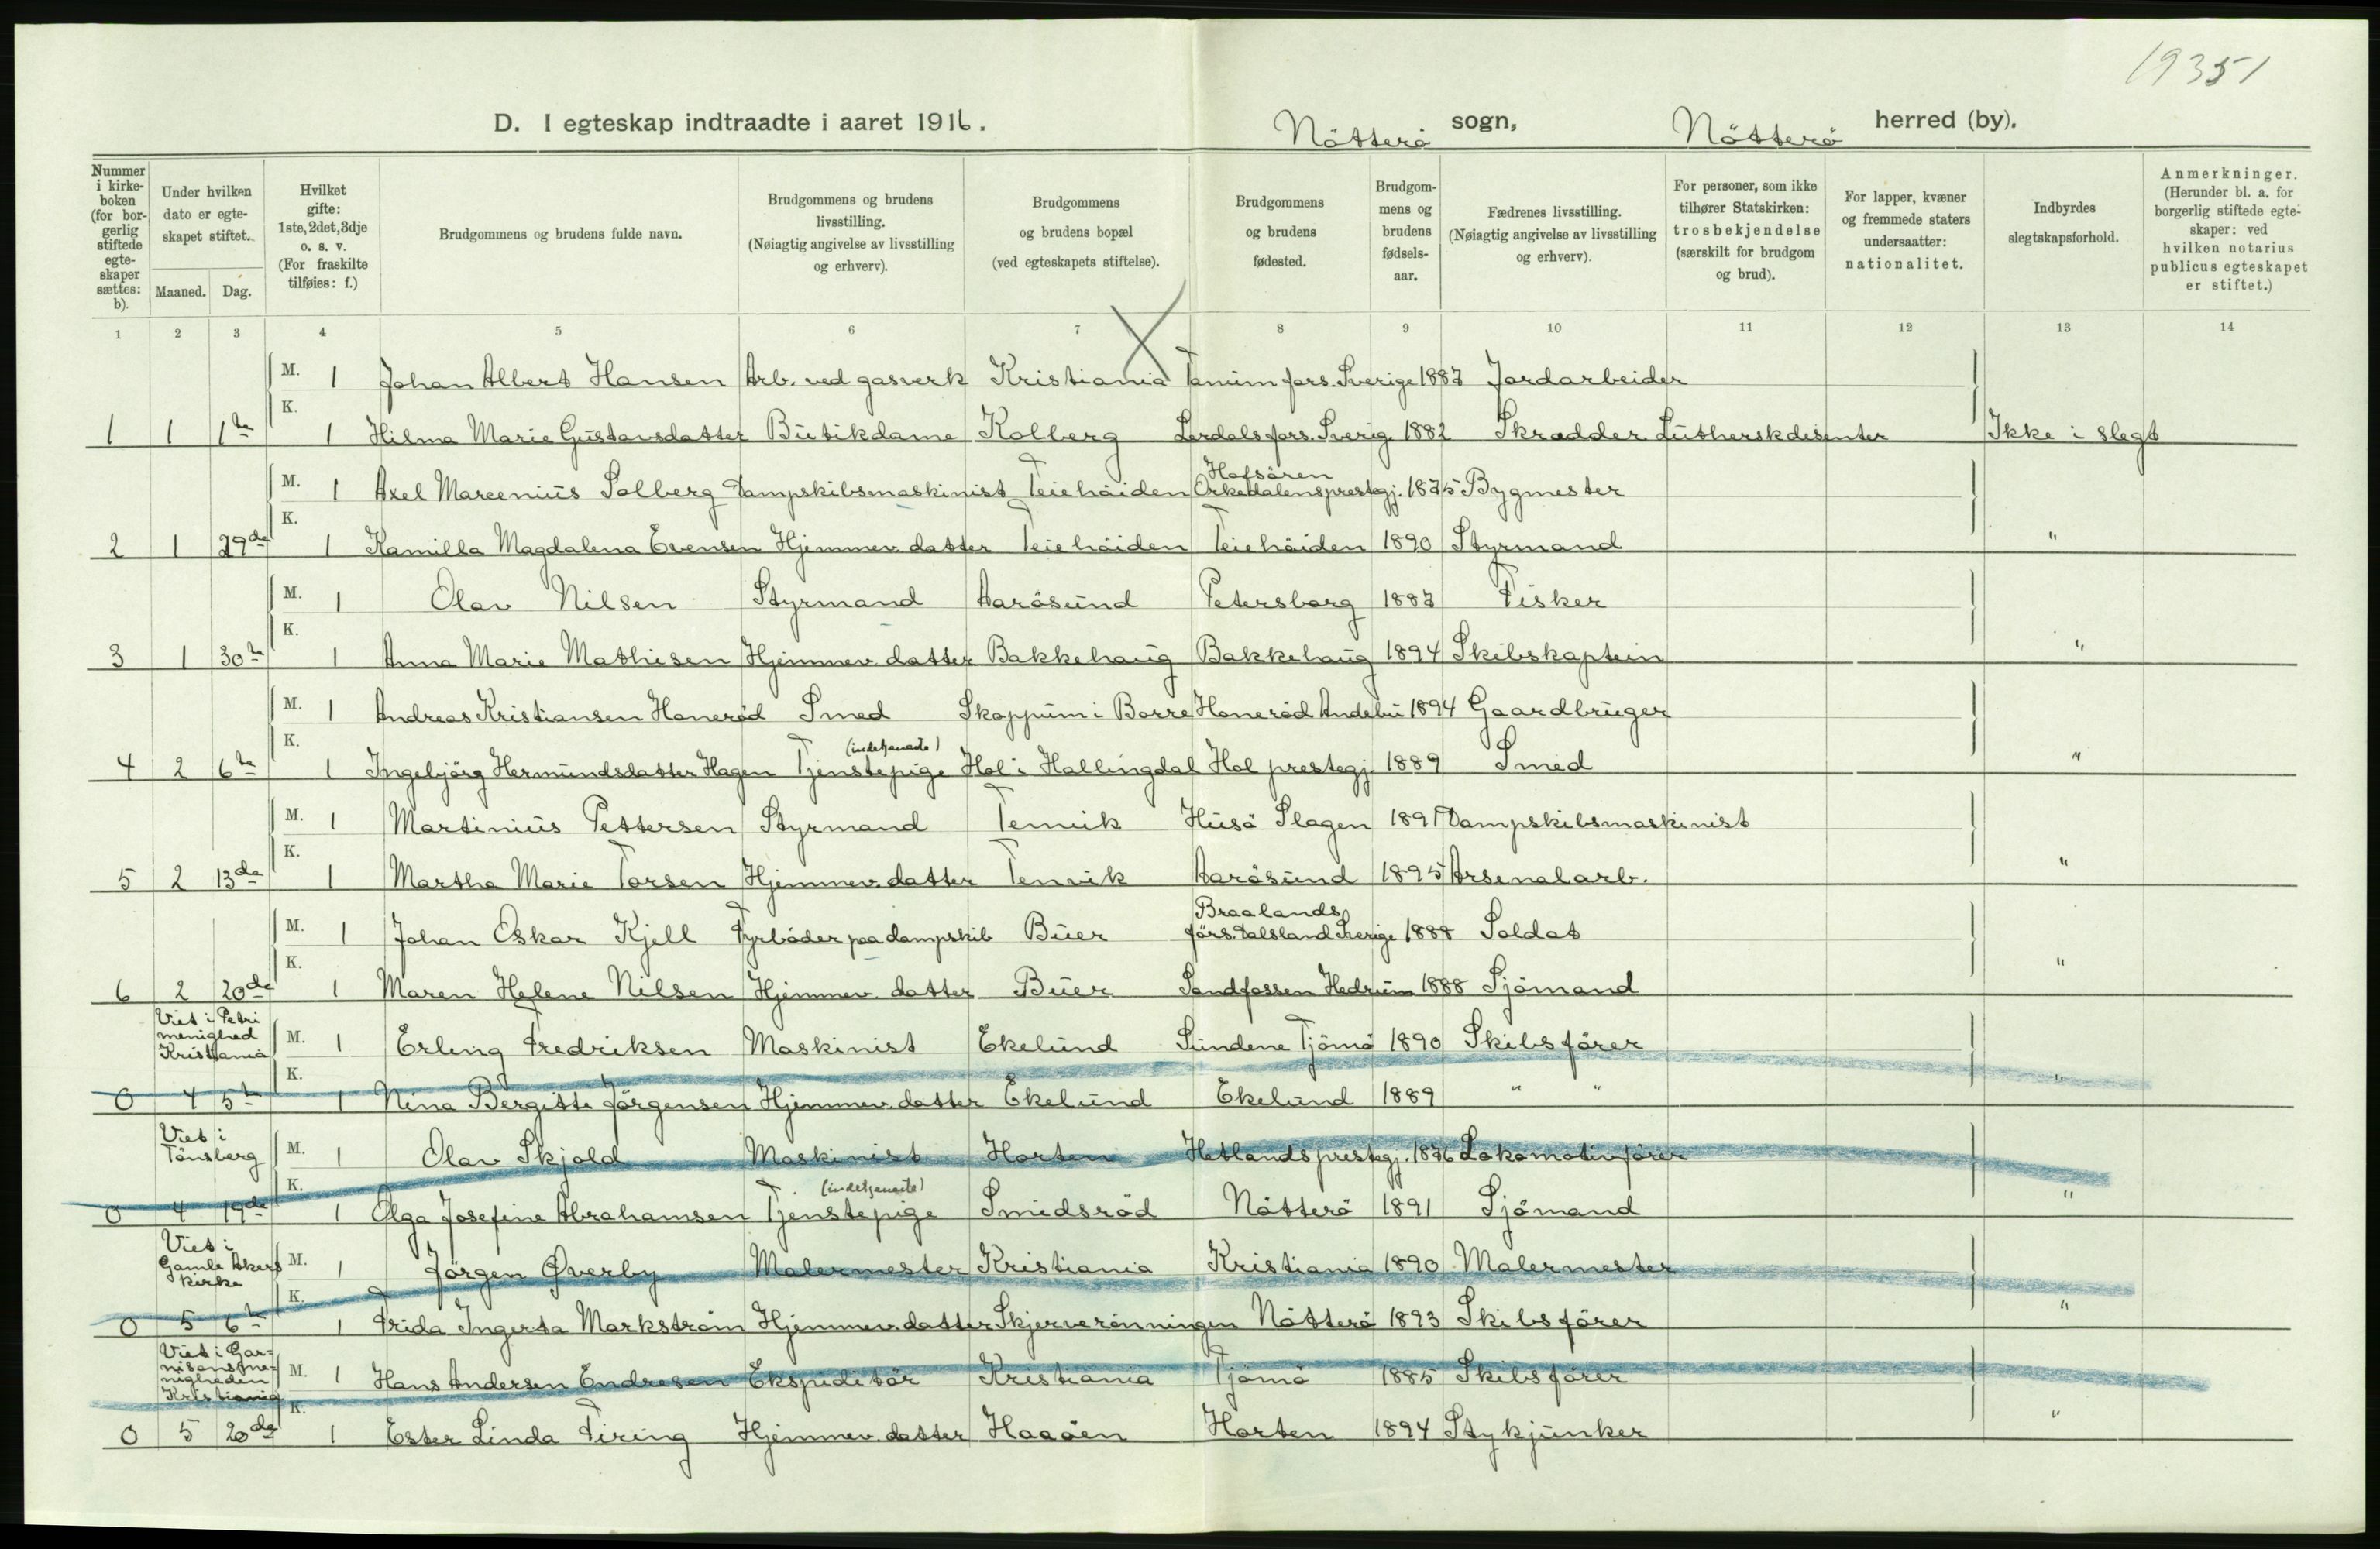 19351
D. I egteskap indtraadte i aaret 1916.
Nötterö sogn, Nötterö herred (by).
Nummer i kirke-boken (for bor-gerlig stiftede egte-skaper sættes: b).
Under hvilken dato er egte-skapet stiftet.
Maaned. Dag.
Hvilket gifte: 1ste, 2det, 3dje o. s. v. (For fraskilte tilføies: f.)
Brudgommens og brudens fulde navn.
Brudgommens og brudens livsstilling. (Nøiagtig angivelse av livsstilling og erhverv).
Brudgommens og brudens bopæl (ved egteskapets stiftelse).
Brudgommens og brudens fødested.
Brudgom-mens og brudens fødsels-aar.
Fædrenes livsstilling. (Nøiagtig angivelse av livsstilling og erhverv).
For personer, som ikke tilhører Statskirken: trosbekjendelse (særskilt for brudgom og brud).
For lapper, kvæner og fremmede staters undersaatter: nationalitet.
Indbyrdes slegtskapsforhold.
Anmerkninger. (Herunder bl. a. for borgerlig stiftede egte-skaper: ved hvilken notarius publicus egteskapet er stiftet.)
1 2 3 4 5 6 7 8 9 10 11 12 13 14
M. 1 Johan Albert Hansen Arb. ved gasverk Kristiania Tanum fors. Sverige 1887 Jordarbeider
K.
1 1 1te 1 Hilma Marie Gustavsdatter Butikdame Kolberg Lerdals fors. Sverig. 1882 Skrædder Lutherskdisenter Ikke i slegt
Hofsören
M. 1 Axel Marcenius Solberg Dampskibsmaskinist Teiehöiden Orkedalensprestegj. 1875 Bygmester
K.
2 1 29de 1 Kamilla Magdalena Evensen Hjemmev. datter Teiehöiden Teiehöiden 1890 Styrmand "
M. 1 Olav Nilsen Styrmand Aarösund Petersborg 1887 Fisker
K.
3 1 30te 1 Anna Marie Mathisen Hjemmev. datter Bakkehaug Bakkehaug 1894 Skibskaptein "
M. 1 Andreas Kristiansen Honeröd Smed Skoppum i Borre Honeröd Andebu 1894 Gaardbruger
K. (indetjeneste)
4 2 6te 1 Ingebjörg Hermundsdatter Hagen Tjenstepige Hol i Hallingdal Hol prestegj. 1889 Smed "
M. 1 Martinius Pettersen Styrmand Tenvik Husö Slagen 1891 Dampskibsmaskinist
K.
5 2 13de 1 Martha Marie Torsen Hjemmev. datter Tenvik Aarösund 1895 Arsenalarb. "
Braalands
M. 1 Johan Oskar Kjell Fyrböder paa dampskib Buer förs. Dalsland Sverige 1888 Soldat
K.
6 2 20de 1 Maren Helene Nilsen Hjemmev. datter Buer Sandfossen Hedrum 1888 Sjömand "
Viet i Petri
menighed
Kristiania M. 1 Erling Fredriksen Maskinist Ekelund Sundene Tjömö 1890 Skibsförer
K.
0 4 5te 1 Nina Bergitte Jörgensen Hjemmev. datter Ekelund Ekelund 1889 " " "
Viet i
Tönsberg M. 1 Olav Skjold Maskinist Horten Hetlands prestegj. 1876 Lokomotivförer
K. (indetjeneste)
0 4 19de 1 Olga Josefine Abrahamsen Tjenstepige Smidsröd Nötterö 1891 Sjömand "
Viet i
Gamle Akers
kirke M. 1 Jörgen Øverby Malermester Kristiania Kristiania 1890 Malermester
K.
0 5 6te 1 Frida Ingerta Markström Hjemmev. datter Skjerverönningen Nötterö 1893 Skibsförer "
Viet i Gar-
nisonsme-
nigheden
Kristiania M. 1 Hans Andersen Endresen Ekspiditör Kristiania Tjömö 1885 Skibsförer
K.
0 5 20de 1 Ester Linda Firing Hjemmev. datter Haaöen Horten 1894 Stykjunker "